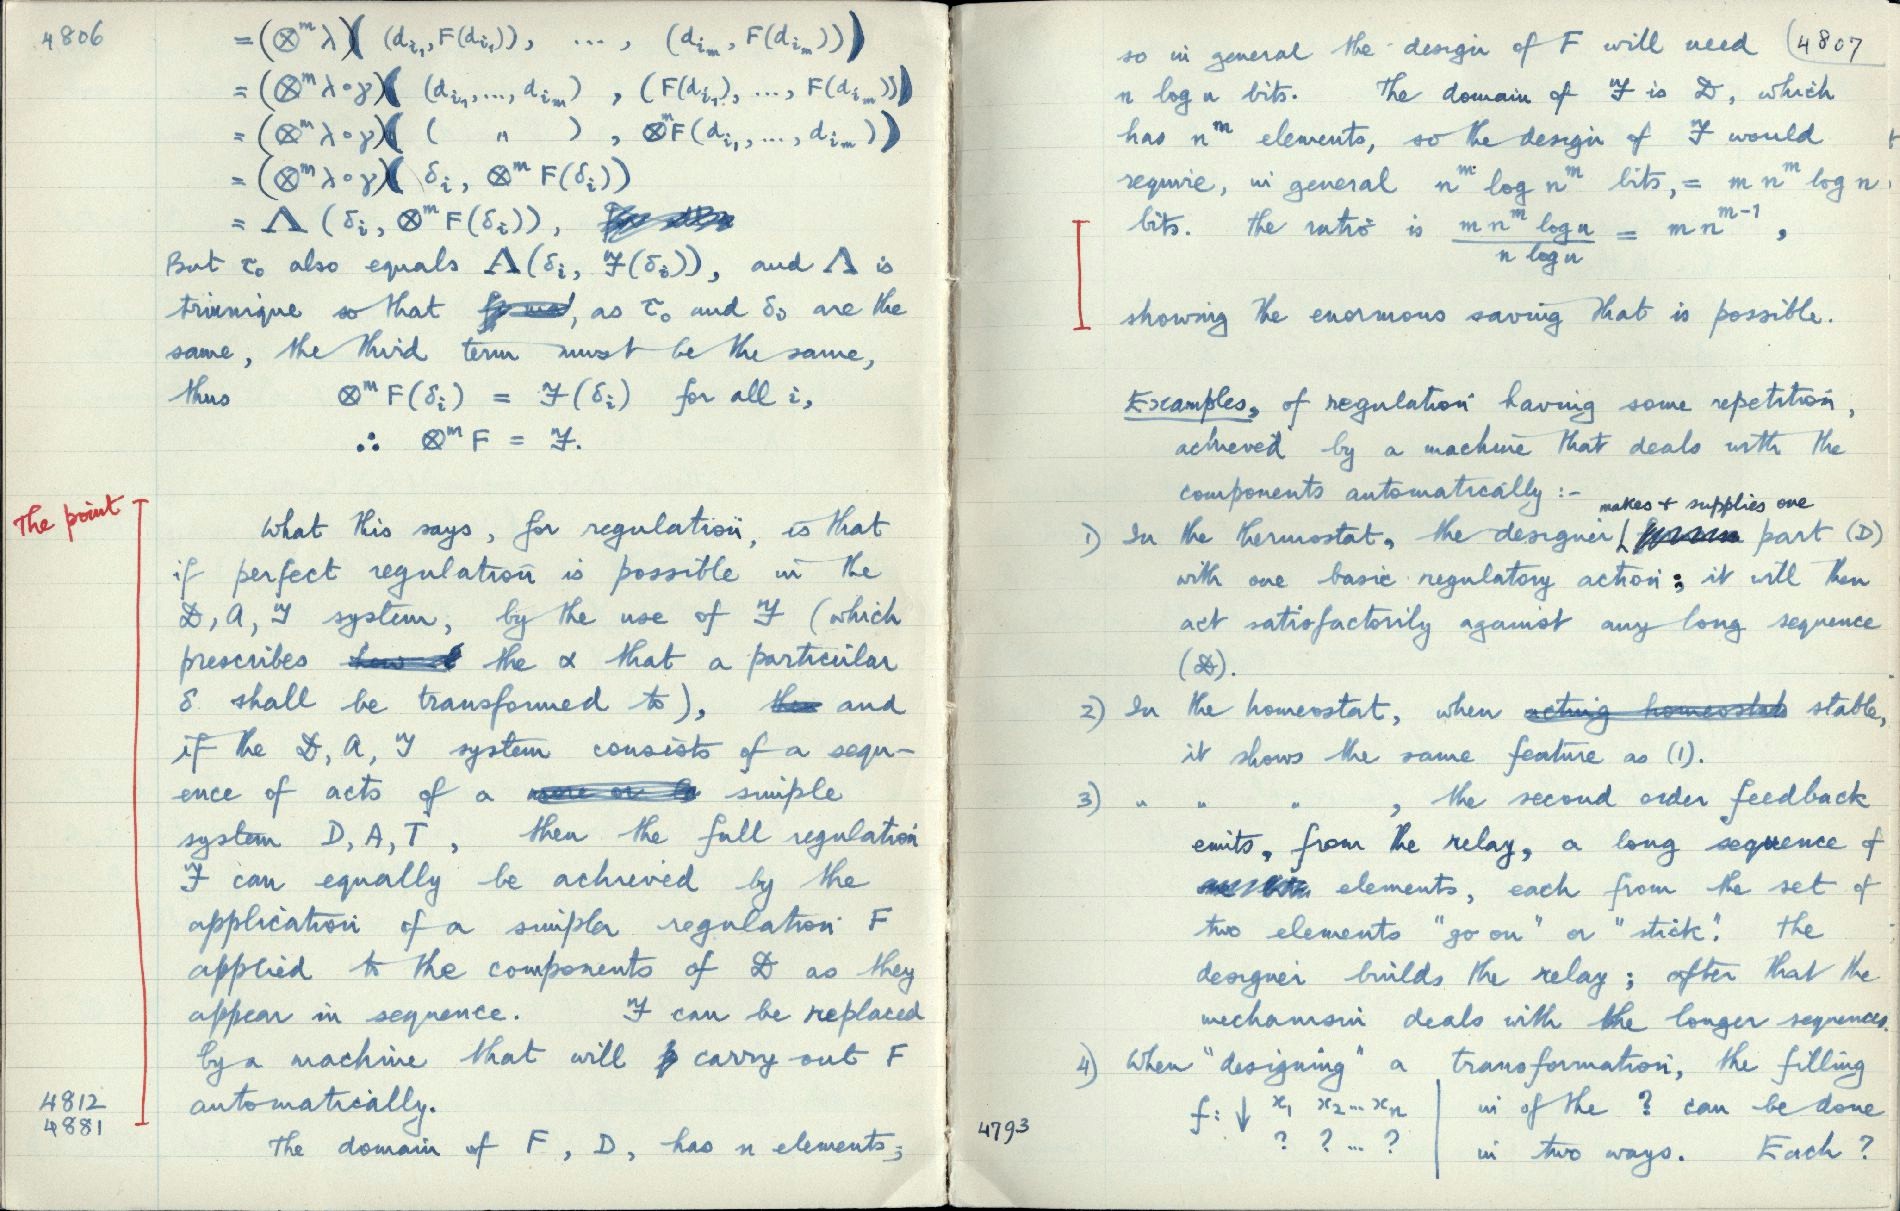 4806
= (⊗ᵐ λ)( (d_i₁, F(d_i₁)), ..., (d_iₘ, F(d_iₘ)))
= (⊗ᵐ λ∘γ)( (d_i₁, ..., d_iₘ) , (F(d_i₁), ..., F(d_iₘ)))
= (⊗ᵐ λ∘γ)( ( " ) , ⊗ᵐF(d_i₁, ..., d_iₘ))
= (⊗ᵐ λ∘γ)( δᵢ, ⊗ᵐ F(δᵢ))
= Λ (δᵢ, ⊗ᵐ F(δᵢ)),
But τ₀ also equals Λ(δᵢ, ℱ(δᵢ)), and Λ is
triunique so that , as τ₀ and δ₀ are the
same, the third term must be the same,
thus ⊗ᵐ F(δᵢ) = ℱ(δᵢ) for all i,
∴ ⊗ᵐ F = ℱ.
The point
What this says, for regulation, is that
if perfect regulation is possible in the
𝔇, A, 𝒯 system, by the use of ℱ (which
prescribes the α that a particular
δ shall be transformed to), and
if the 𝔇, A, 𝒯 system consists of a sequ-
ence of acts of a simple
system D, A, T , then the full regulation
ℱ can equally be achieved by the
application of a simpler regulation F
applied to the components of 𝔇 as they
appear in sequence. ℱ can be replaced
by a machine that will carry out F
automatically.
4812
4881
The domain of F, D, has n elements;
4807
so in general the design of F will need
n log n bits. The domain of ℱ is 𝔇, which
has nᵐ elements, so the design of ℱ would
require, in general nᵐ log nᵐ bits, = m nᵐ log n
bits. The ratio is m nᵐ log n / n log n = m nᵐ⁻¹ ,
showing the enormous saving that is possible.
Examples, of regulation having some repetition,
achieved by a machine that deals with the
components automatically :-
1) In the thermostat, the designer makes & supplies one part (D)
with one basic regulatory action; it will then
act satisfactorily against any long sequence
(𝔇).
2) In the homeostat, when acting homeostat stable,
it shows the same feature as (1).
3) " " " , the second order feedback
emits, from the relay, a long sequence of
elements, each from the set of
two elements "go on" or "stick". The
designer builds the relay; after that the
mechanism deals with the longer sequences.
4) When "designing" a transformation, the filling
f: ↓ x₁ x₂ ... xₙ in of the ? can be done
? ? ... ? in two ways. Each ?
4793